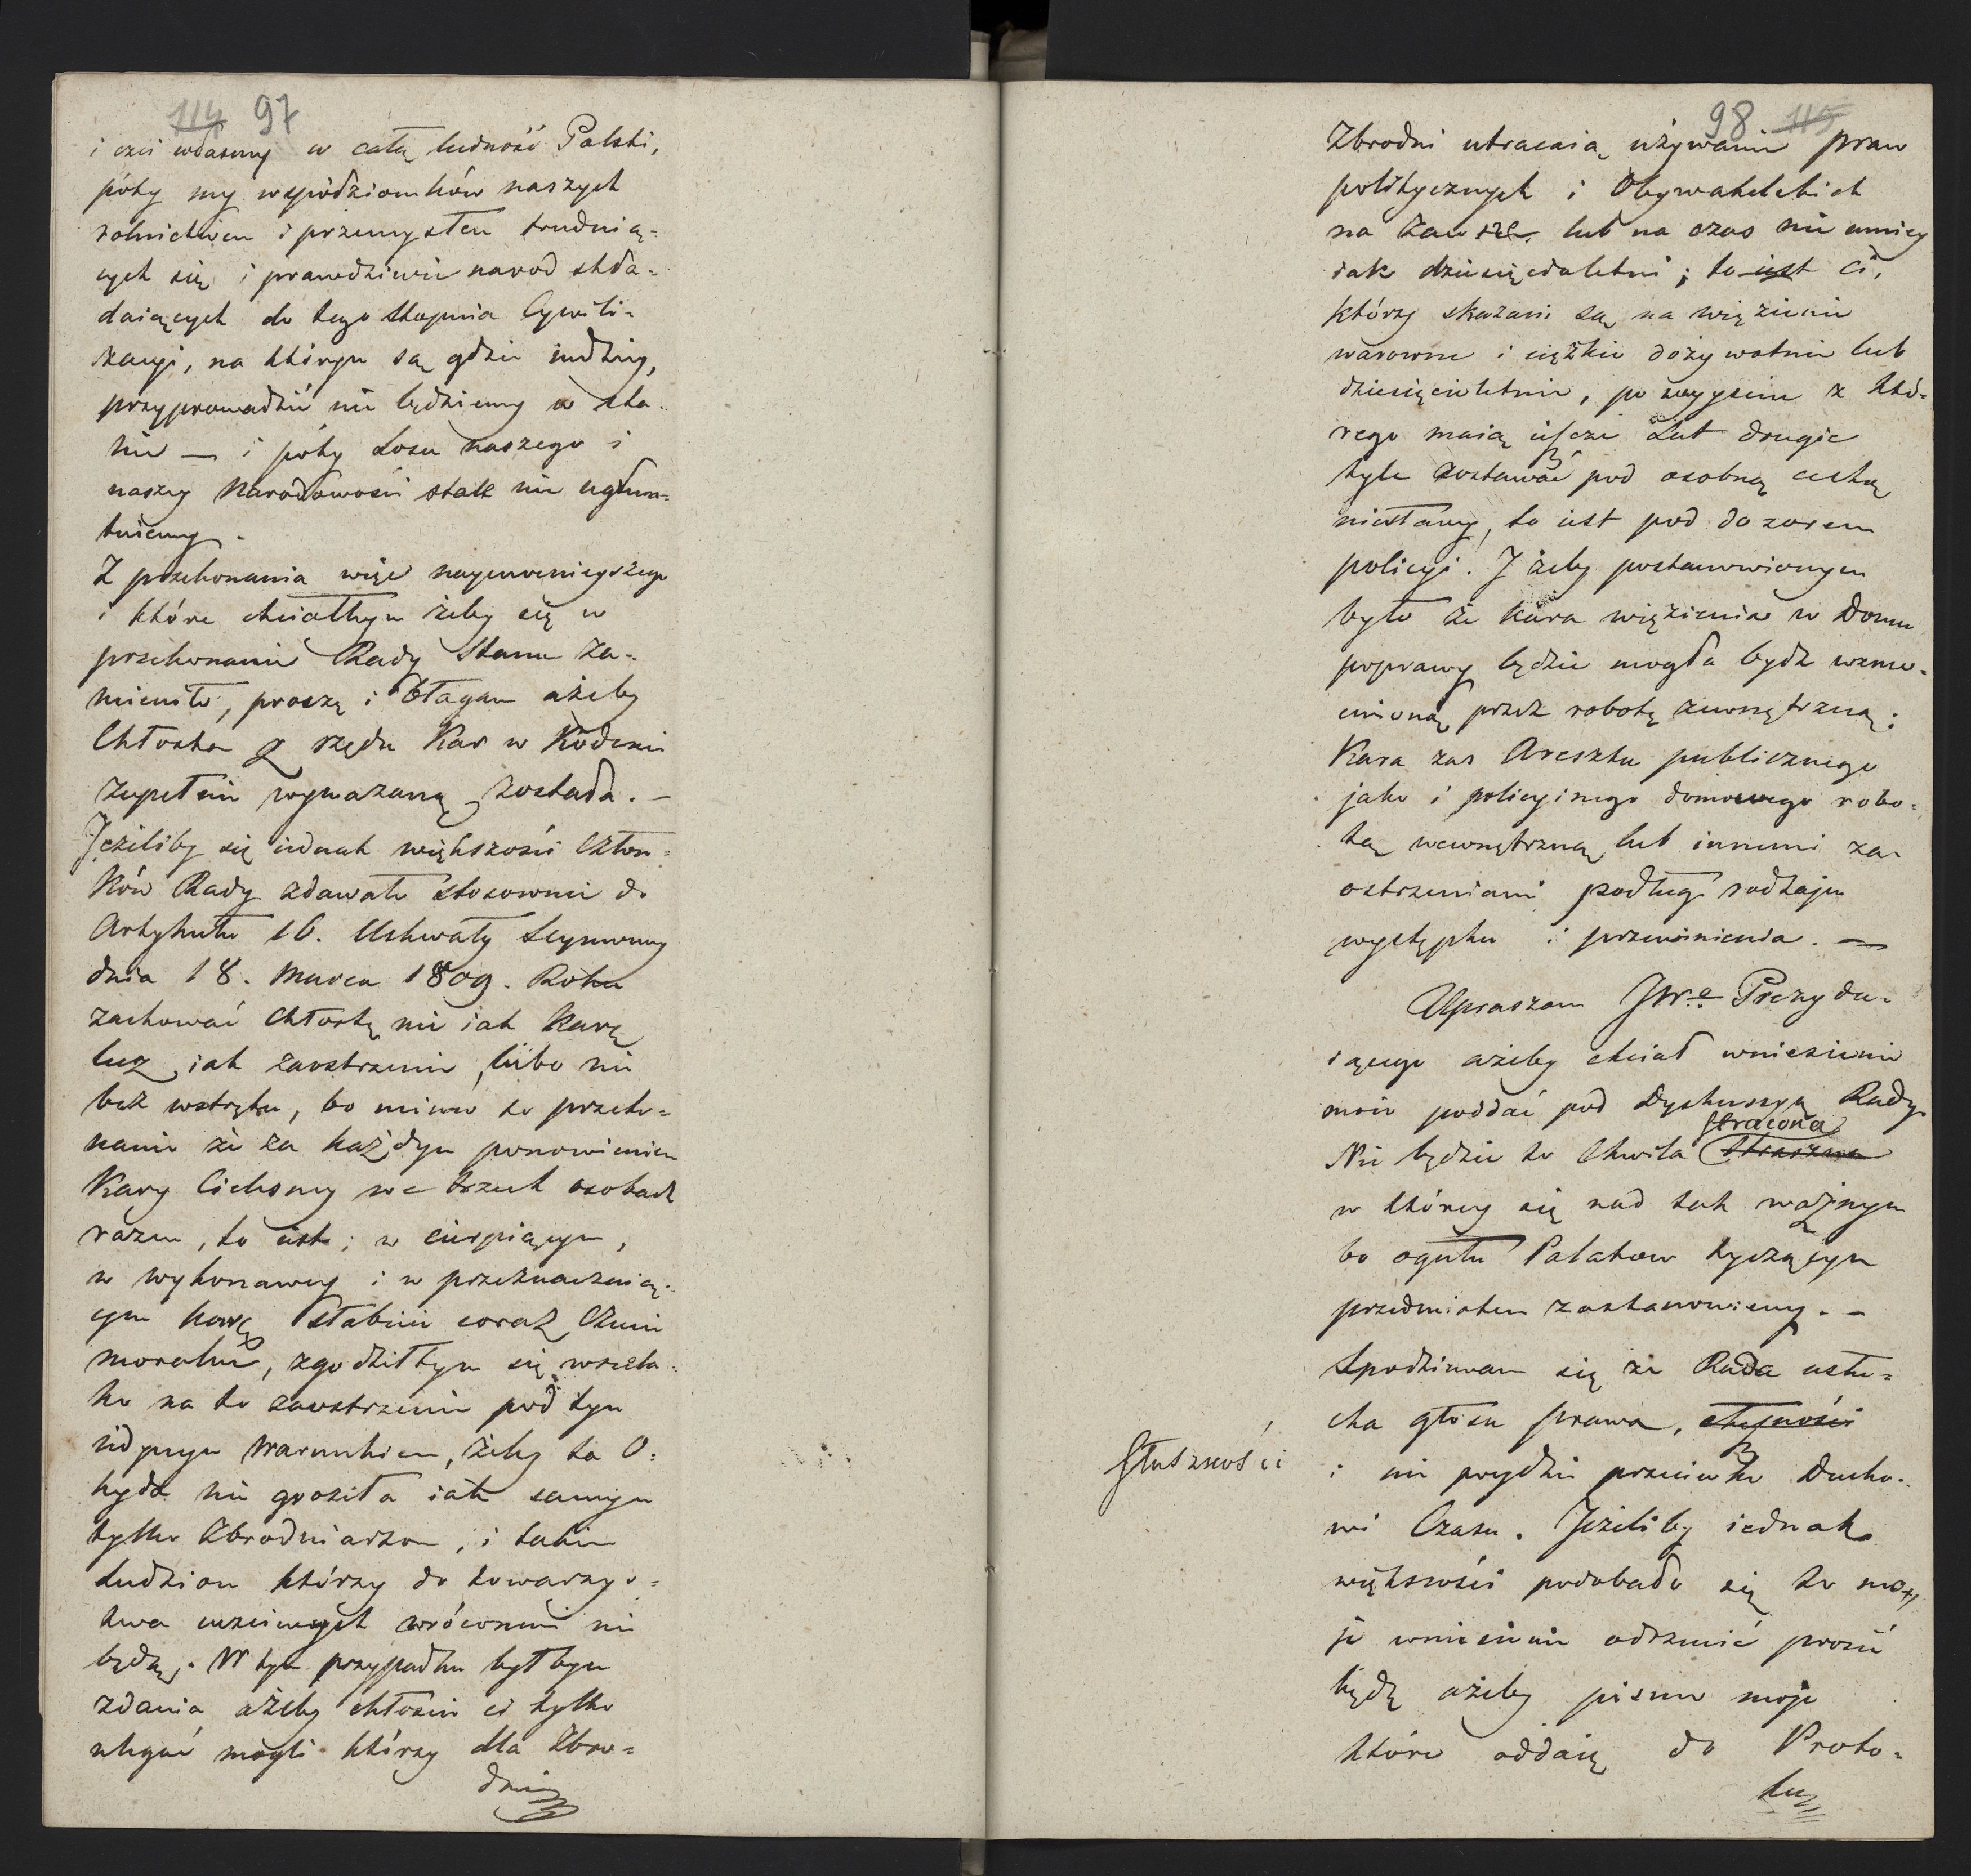 114 97
i czci własney w całą ludność Polski,
póty my współziomków naszych
rolnictwem i przemysłem trudnią=
cych się i prawdziwie narod skła=
daiących do tego stopnia Cywili=
zacyi, na którym są gdzie indziey,
przyprowadzić nie będziemy w sta=
nie — i póty Losu naszego i
naszey Narodowości stale nie ugrun=
tuiemy.
Z przekonania więc naypewnieyszego
i które chciałbym żeby się w
przekonanie Rady Stanu za=
mieniło, proszę i błagam ażeby
Chłosta z rzędu Kar w Kodexie
zupełnie wymazaną została. —
Jeżeliby się iednak większości Człon=
ków Rady zdawało stosownie do
Artykułu 16. Uchwały Seymowey
dnia 18. Marca 1809. Roku
zachować Chłostę nie iak Karę
lecz iak zaostrzenie, lubo nie
bez wstrętu, bo mimo to przeko=
nanie że za każdym ponowieniem
Kary Cielesney we trzech osobach
razem, to iest; w cierpiącym,
w wykonawcy i w przeznaczaią=
cym karę słabieie coraz Czucie
moralne, zgodziłbym się wszela=
ko na to zaostrzenie pod tym
iedynym Warunkiem, żeby ta O=
hyda nie groziła iak samym
tylko Zbrodniarzom, i takim
Ludziom którzy do towarzys=
twa uczciwych wróconemi nie
będą. W tym przypadku byłbym
zdania ażeby chłoście ci tylko
ulegać mogli którzy dla Zbro=
dni
98 115
Zbrodni utracaią używanie praw
politycznych i Obywatelskich
na zawsze lub na czas nie mniey
iak dziesięcioletni; to iest ci,
którzy skazani są na więzienie
warowne i ciężkie dożywotnie lub
dziesięcioletnie, po wyyściu z któ=
rego maią ieszcze Lat drugie
tyle zostawać pod osobną cechą
niesławy, to iest pod dozorem
policyi. I żeby postanowionym
było że kara więzienia w Domu
poprawy będzie mogła bydź wzmo=
cnioną przez robotę zewnętrzną:
Kara zas Aresztu publicznego
jako i policyinego domowego robo=
tą wewnętrzną lub innemi za=
ostrzeniami podług rodzaju
występku i przewinienia. —
Upraszam JWgo Prezydu=
iącego ażeby chciał wniesienie
moie poddać pod Dyskussyą Rady.
Nie będzie to Chwila straszna stracona
w którey się nad tak ważnym
bo ogułu Polakow tyczącym
przedmiotem zastanowiemy. —
Spodziewam się że Rada usłu=
cha głosu prawa,
słuszności
i nie póydzie przeciwko Ducho=
wi Czasu. Jeżeliby iednak
większości podobało się to mo=
je wniesienie odrzucić prosić
będę ażeby pismo moje
które oddaię do Proto=
ku